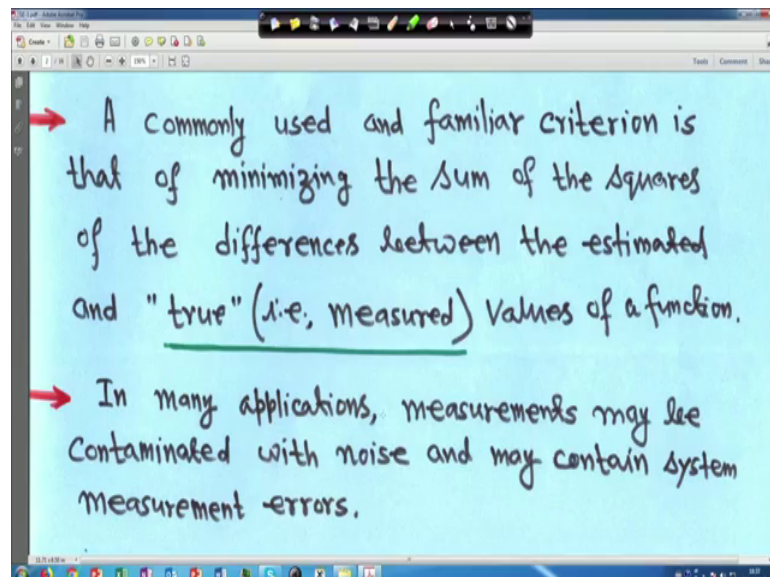 File Edit View Window Help
Create
Tools Comment
A commonly used and familiar criterion is
that of minimizing the sum of the squares
of the differences between the estimated
and "true" (i.e., measured) values of a function.
In many applications, measurements may be
contaminated with noise and may contain system
measurement errors.